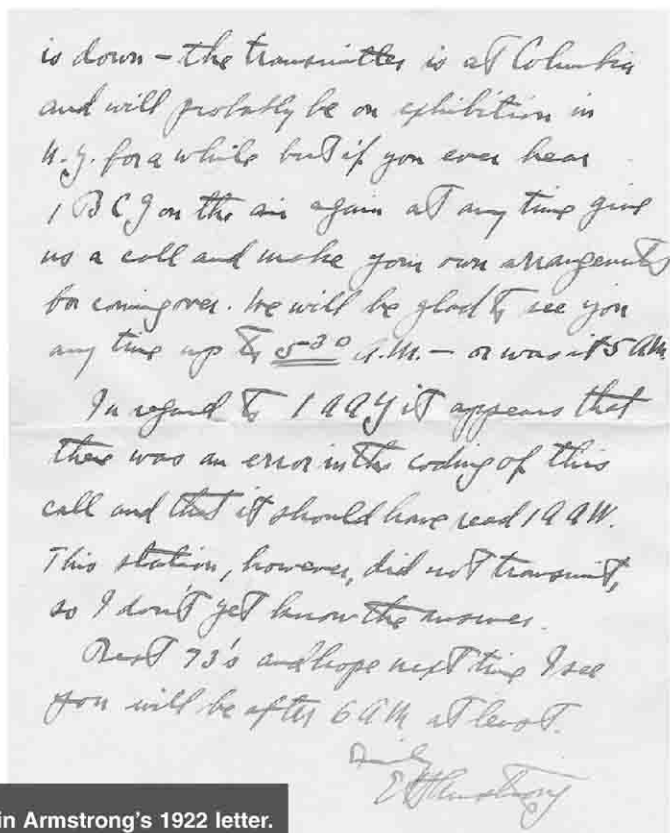 is down – the transmitter is at Columbia
and will probably be on exhibition in
N.Y. for a while but if you ever hear
1 BCG on the air again at any time give
us a call and make your own arrangements
for coming over. We will be glad to see you
any time up to 5³⁰ A.M. – or was it 5 AM
In regard to 1 AAY it appears that
there was an error in the coding of this
call and that it should have read 1AAW.
This station, however, did not transmit,
so I don't yet know the answer.
Best 73's and hope next time I see
you will be after 6 AM at least.
EHArmstrong
in Armstrong's 1922 letter.